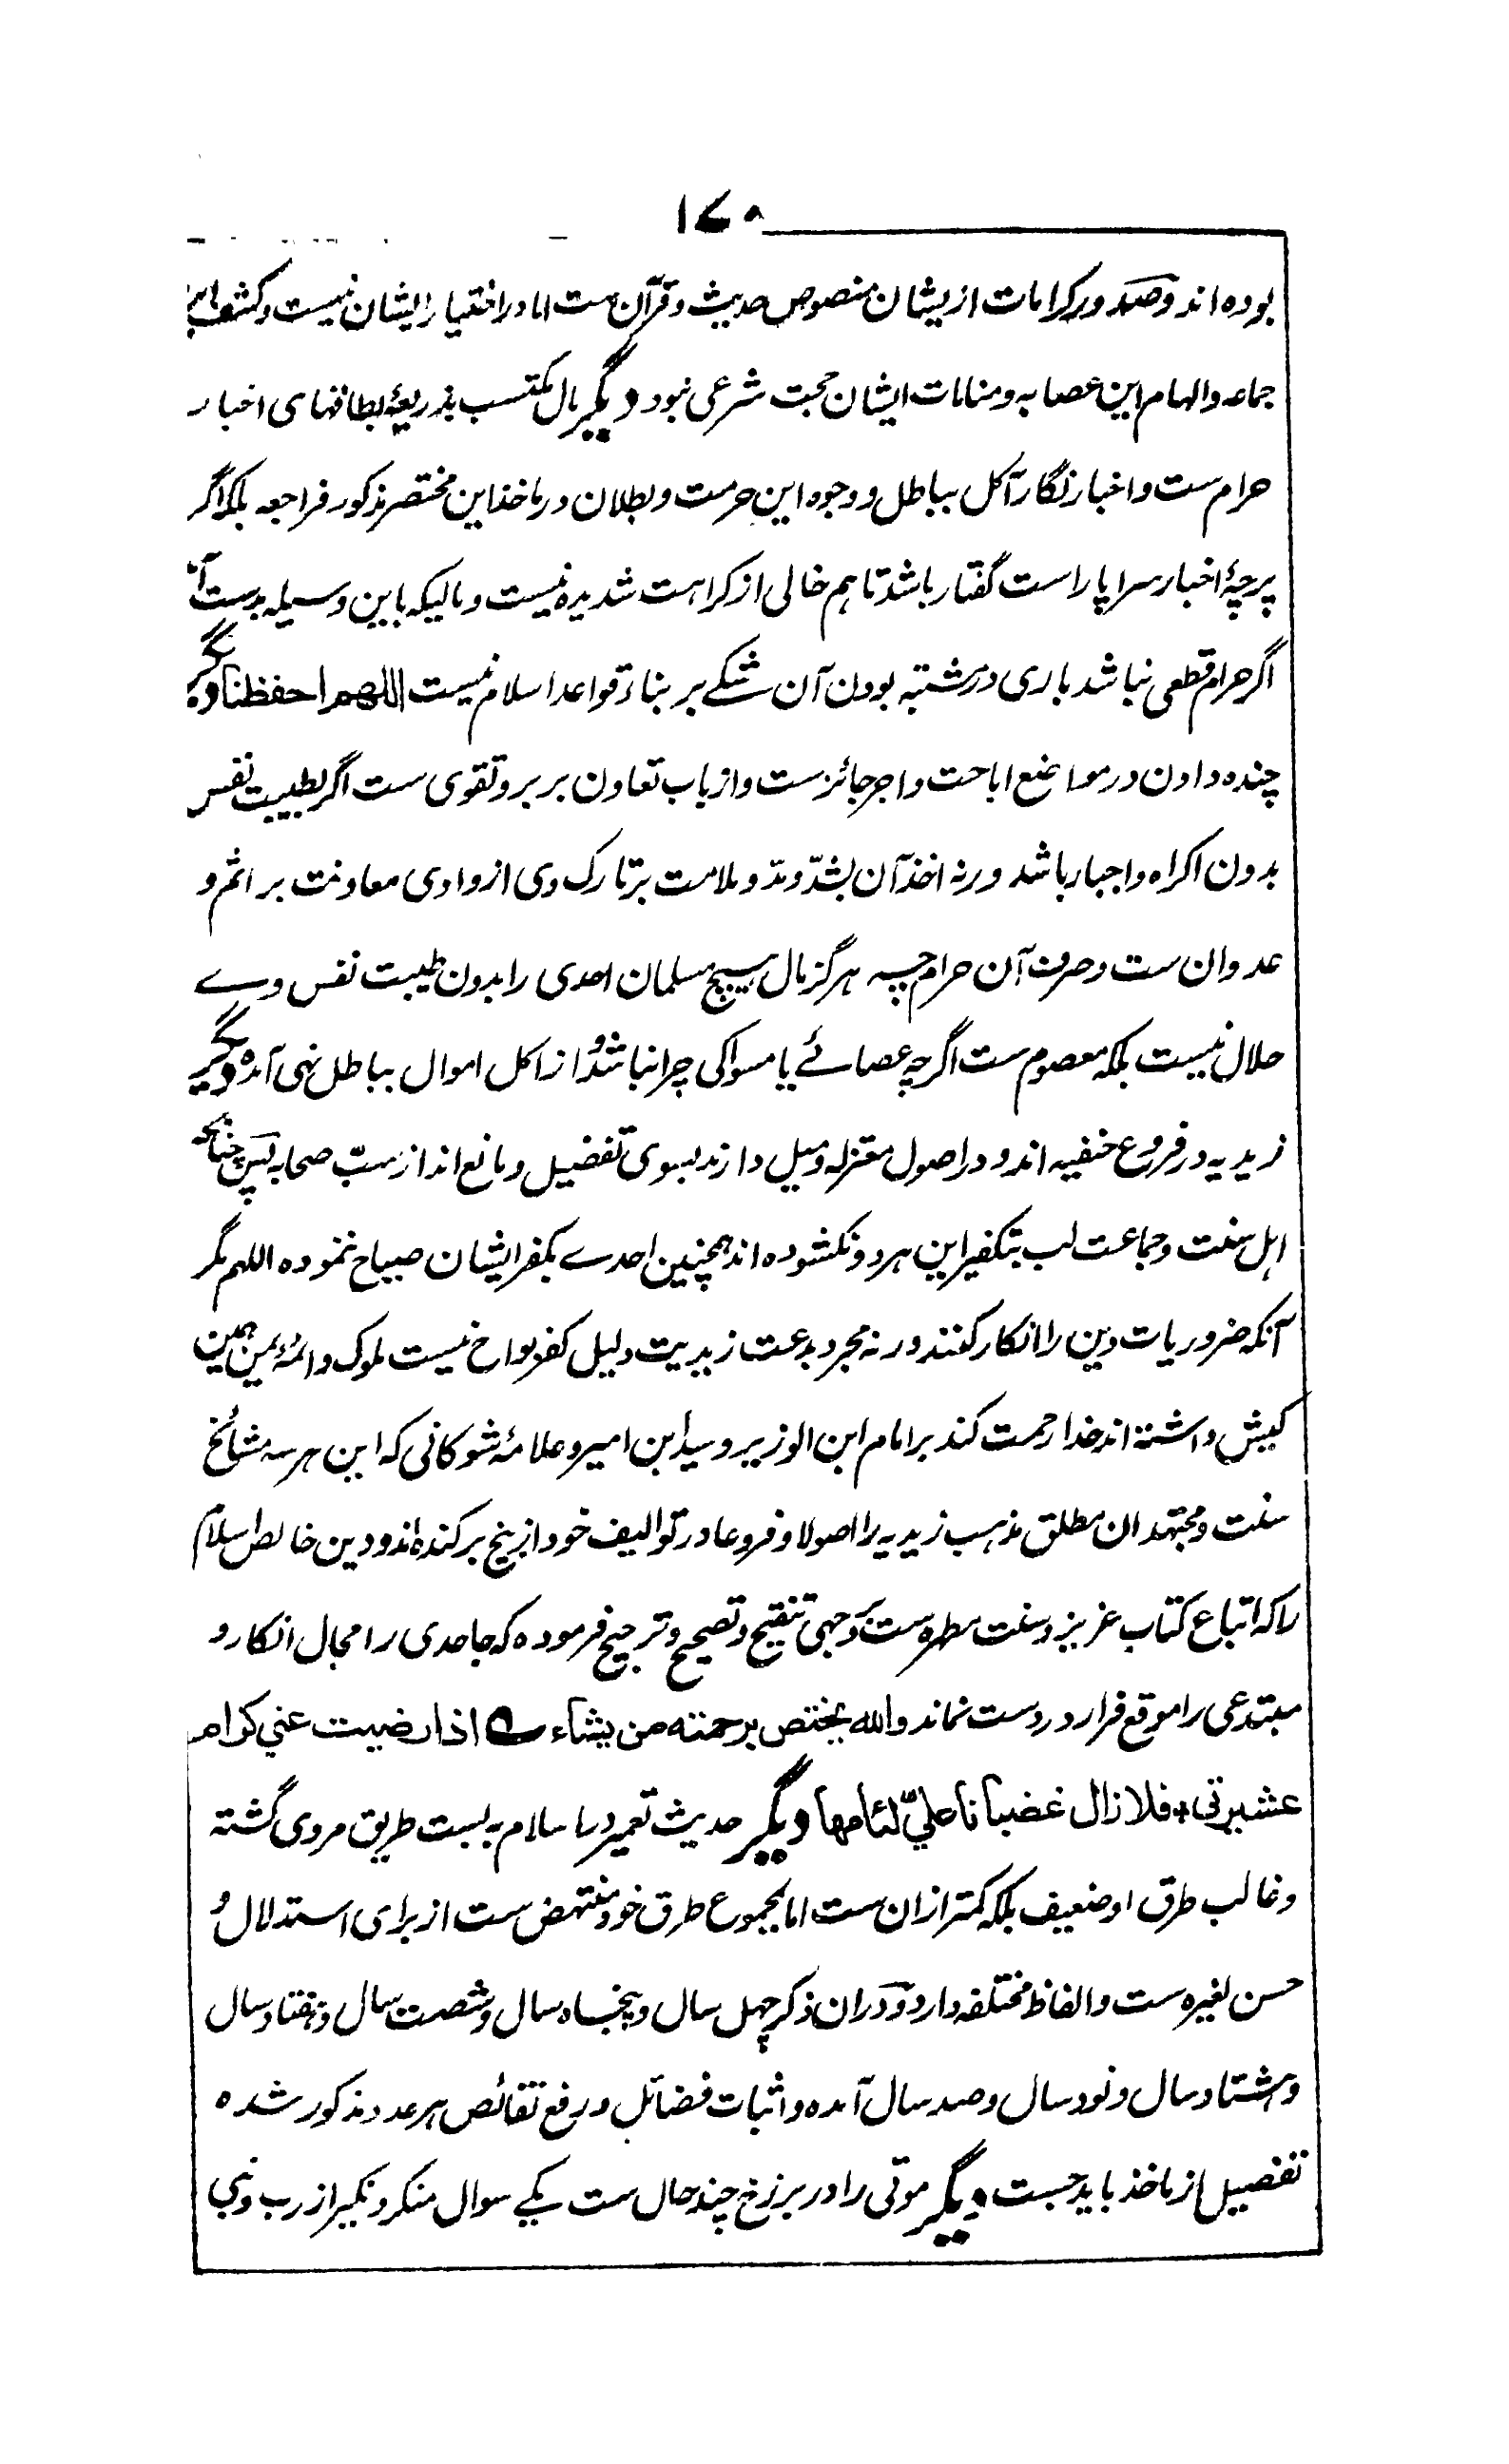 ١٧٠
بوده اند و صدور کرامات ازیشان منصوص حدیث و قرآن ست اما در اختیار ایشان نیست و کشف این
جماعه و الهام این عصابه و منامات ایشان حجت شرعی نبود دیگر مال مکتسب بذریعهٔ بطاقهای اخبار
حرام ست و اخبار نگار آکل بباطل و وجوه این حرمت و بطلان در ماخذ این مختصر مذکور فراجعه بلکه اگر
پرچهٔ اخبار سراپا راست گفتار باشد تا هم خالی از کراهت شدیده نیست و مالیکه باین وسیله بدست آمد
اگر حرام قطعی نباشد باری در مشتبه بودن آن شکے بر بناء قواعد اسلام نیست اللهم احفظنا دیگر
چنده دادن در مواضع اباحت و اجر جائزست و از باب تعاون بر بر و تقوی ست اگر بطیبت نفس
بدون اکراه و اجبار باشد ورنه اخذ آن بشدّ و مدّ و ملامت بر تارک وی از وادی معاونت بر اثم و
عدوان ست و صرف آن حرام چه هرگز مال هیچ مسلمان احدی را بدون طیبت نفس وے
حلال نیست بلکه معصوم ست اگرچه عصائے یا مسواکی چرا نباشد و از اکل اموال بباطل نهی آمده دیگر
زیدیه در فروع حنفیه اند و در اصول معتزله و میل دارند بسوی تفضیل و مانع اند از سبّ صحابه پس چنانکه
اهل سنت و جماعت لب بتکفیر این هر دو نکشوده اند همچنین احدے بکفر ایشان صیاح ننموده اللهم مگر
آنکه ضروریات دین را انکار کنند ورنه مجرد بدعت زیدیت دلیل کفر بواح نیست ملوک و ائمهٔ یمن همین
کیش داشته اند خدا رحمت کند بر امام ابن الوزیر و سید ابن امیر و علامهٔ شوکانی که این هر سه مشائخ
سنت و مجتهدان مطلق مذهب زیدیه را اصولا و فروعا در توالیف خود از بیخ برکنده اند و دین خالص اسلام
را که اتباع کتاب عزیز و سنت مطهره ست بوجهی تنقیح و تصحیح و ترجیح فرموده که جاحدی را مجال انکار و
مبتدعی را موقع فرار در دست نماند والله يختص برحمته من يشاء ے اذا رضيت عني كرام
عشيرتي + فلا زال غضبانا عليّ لئامها دیگر حدیث تعمیر در اسلام به بست طریق مروی گشته
و غالب طرق او ضعیف بلکه کمتر ازان ست اما بمجموع طرق خود منتهض ست از برای استدلال و
حسن لغیره ست و الفاظ مختلفه دارد و دران ذکر چهل سال و پنجاه سال و شصت سال و هفتاد سال
و هشتاد سال و نود سال و صد سال آمده و اثبات فضائل و رفع نقائص هر عدد مذکور شده
تفصیل از ماخذ باید جست دیگر موتی را در برزخ چند حال ست یکے سوال منکر و نکیر از رب و نبی